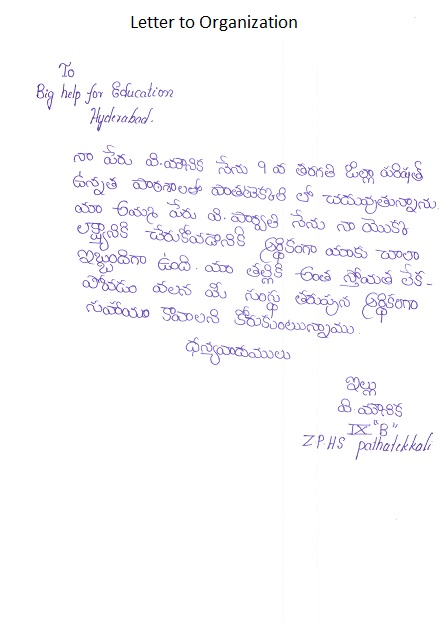 Letter to Organization
To
Big help for Education
Hyderabad.
నా పేరు వి.మౌనిక నేను 9 వ తరగతి జిల్లా పరిషత్
ఉన్నత పాఠశాలలో పాతటెక్కలి లో చదువుతున్నాను.
మా అమ్మ పేరు వి. పార్వతి నేను నా యొక్క
లక్ష్యానికి చేరుకోవడానికి ఆర్థికంగా మాకు చాలా
ఇబ్బందిగా ఉంది. మా తల్లికి అంత స్తోమత లేక-
పోవడం వలన మీ సంస్థ తరుపున ఆర్థికంగా
సహాయం కావాలని కోరుకుంటున్నాము.
ధన్యవాదములు
ఇట్లు
వి.మౌనిక
IX "B"
ZPHS pathatekkali